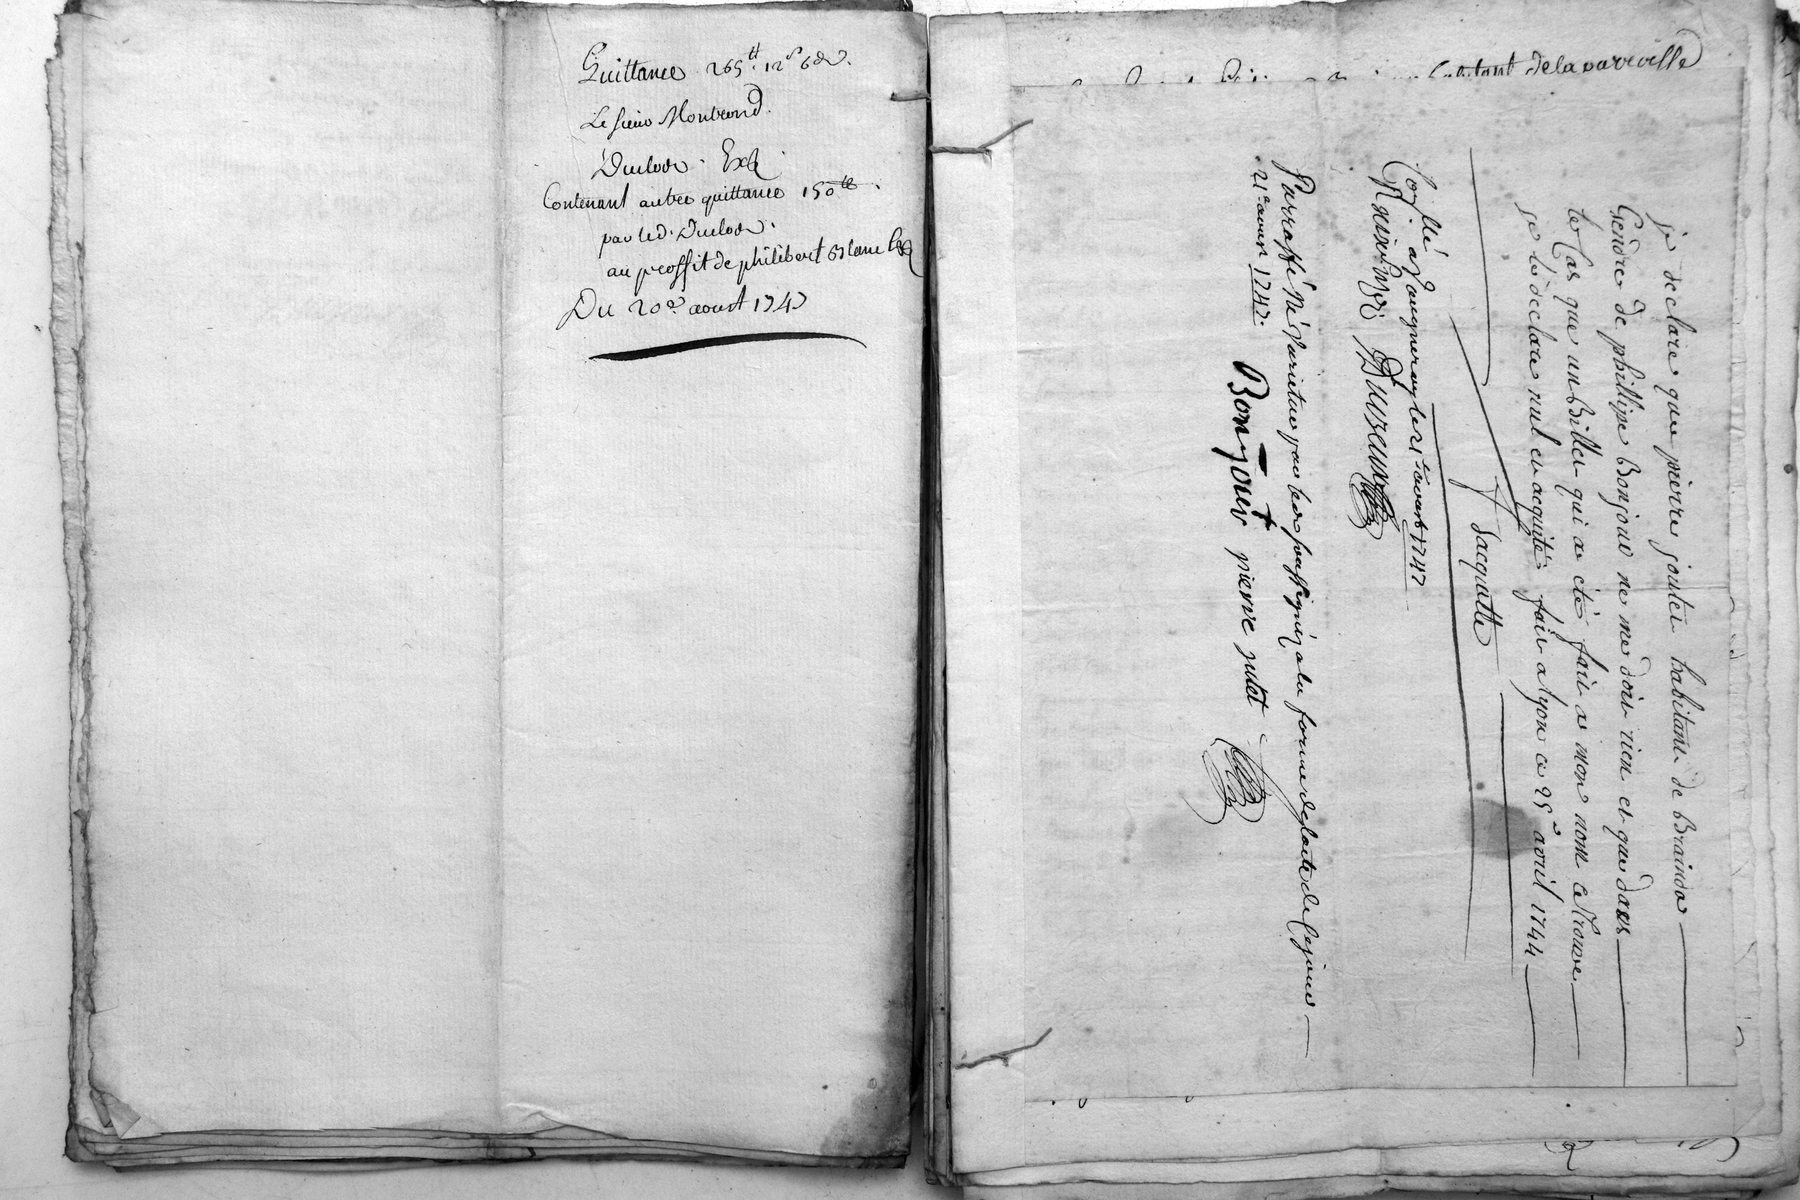 Quittance 265lt 12s 6d.
Le sieur Montrond
à Duclos. Exp.
Contenant autre quittance 150lt
par led. Duclos.
au proffit de philibert Blanc
Du 20e aoust 1747
habitant de la varieville
je declare que pierre joutet habitant de Braindas
Gendre de phillipe Bonjour ne me doit rien et que dans
le Cas que un Billet qui a eté fait a mon nom ce trouve
je le declare nul et acquité fait a lyon ce 25e avril 1744
Jacquette
Conllé a Vaugneray le 21e aoust 1747
R treize sols Duvern
Parraffé Ne Varietur par les soussignéz a la forme de l'acte de Cejour
21e aoust 1747.
Bonjour pierre jutet